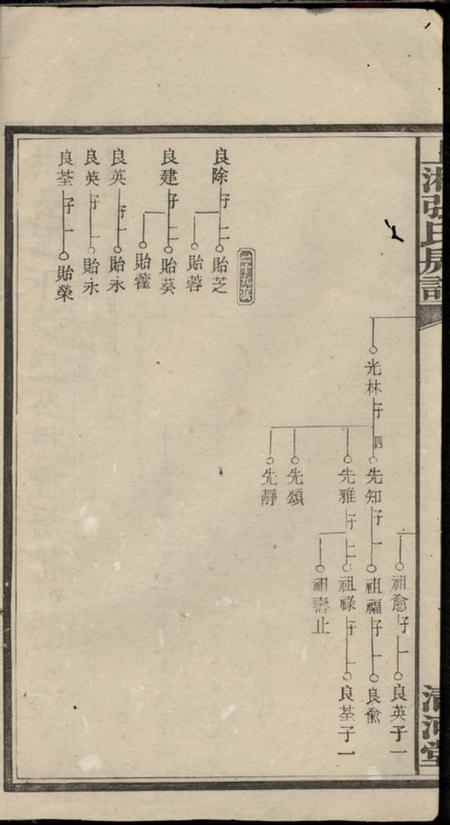 上湘張氏房譜
清河堂
祖愈子一
良英子一
光林子四
先知子一
祖福子一
良愈
先雅子二
祖祿子一
良荃子一
祖壽止
先頌
先靜
二十九派
良除子二
貽芝
貽蓉
良建子二
貽葵
貽藿
良英子一
貽永
良英子一
貽永
良荃子一
貽榮